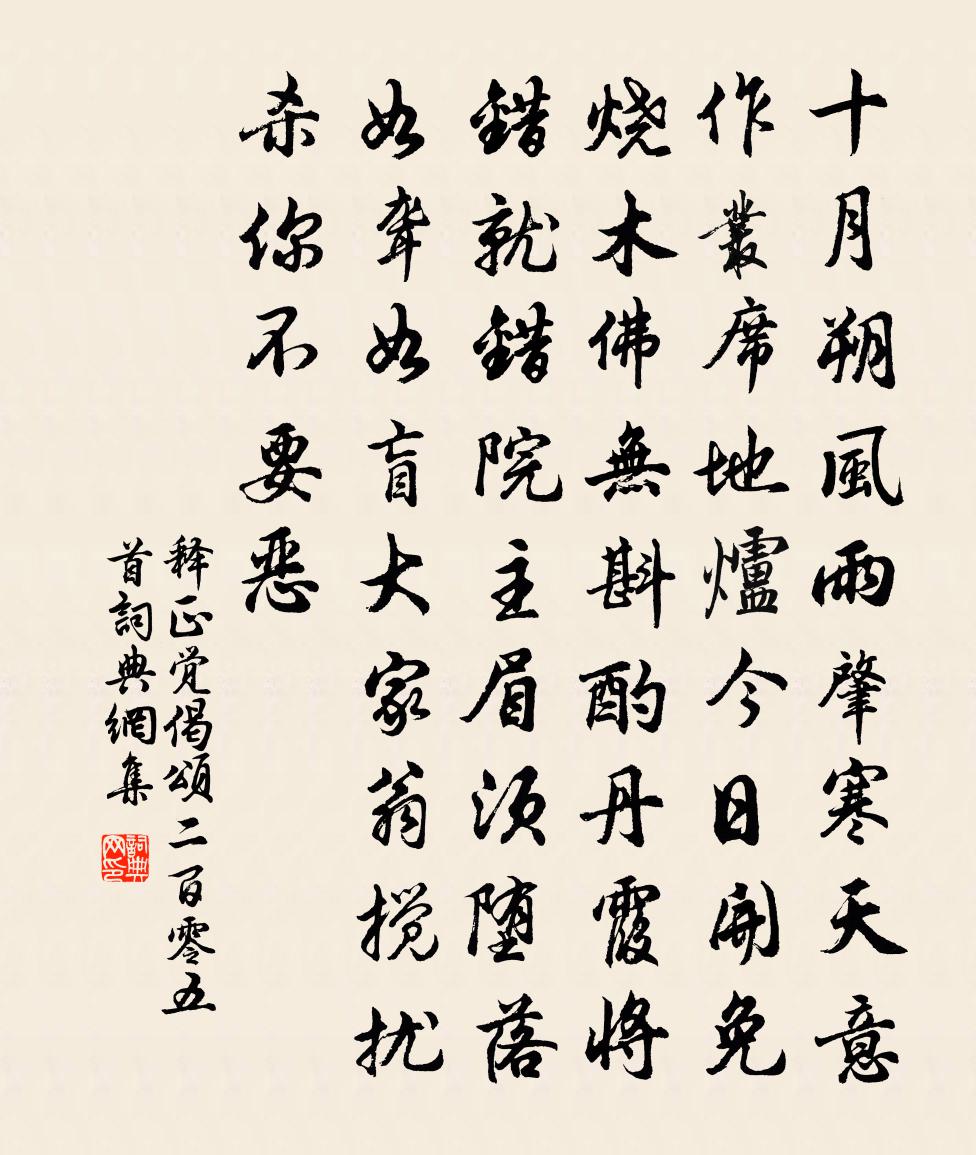 十月朔風雨肇寒天意
作叢席地爐今日開免
烧木佛無斟酌丹霞將
錯就錯院主眉须堕落
如聾如盲大家翁搅扰
杀你不要惡
释正觉偈頌二百零五
首詞典網集
詞典网印